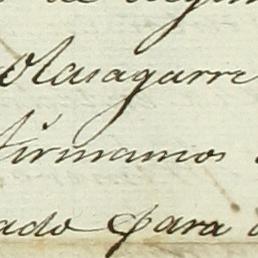 de algun
Olasagarre
firmamos
ado para